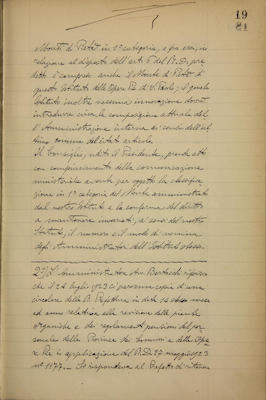 19
Monti di Pietà in 1ª categoria, e fra essi, in
relazione al disposto dell'art. 5 del R. D. pre
detto è compreso anche il Monte di Pietà di
questo Istituto delle Opere Pie di S. Paolo; il quale
Istituto inoltre nessuna innovazione dovrà
introdurre circa la composizione attuale del
l'Amministrazione interna ai sensi dell'ul
timo comma del citato articolo.
Il Consiglio, udito il Presidente, prende atto
con compiacimento della comunicazione
ministeriale avente per oggetto la classifica
zione in 1ª categoria del Monte amministrato
dal nostro Istituto e la conferma del diritto
a mantenere invariati, ai sensi del nostro
Statuto, il numero e il modo di nomina
degli Amministratori dell'Istituto stesso.
2º) L'Amministratore Avv. riferisce
che il 24 luglio 1923 ci pervenne copia di una
circolare della R. Prefettura in data 14 stesso mese
ed anno relativa alla revisione delle piante
organiche e dei regolamenti pensioni del per
sonale delle Provincie dei Comuni e delle Ope
re Pie in applicazione del R. D. 27 maggio 1923
nº 1177. - Si rispondeva al Prefetto di ritenere